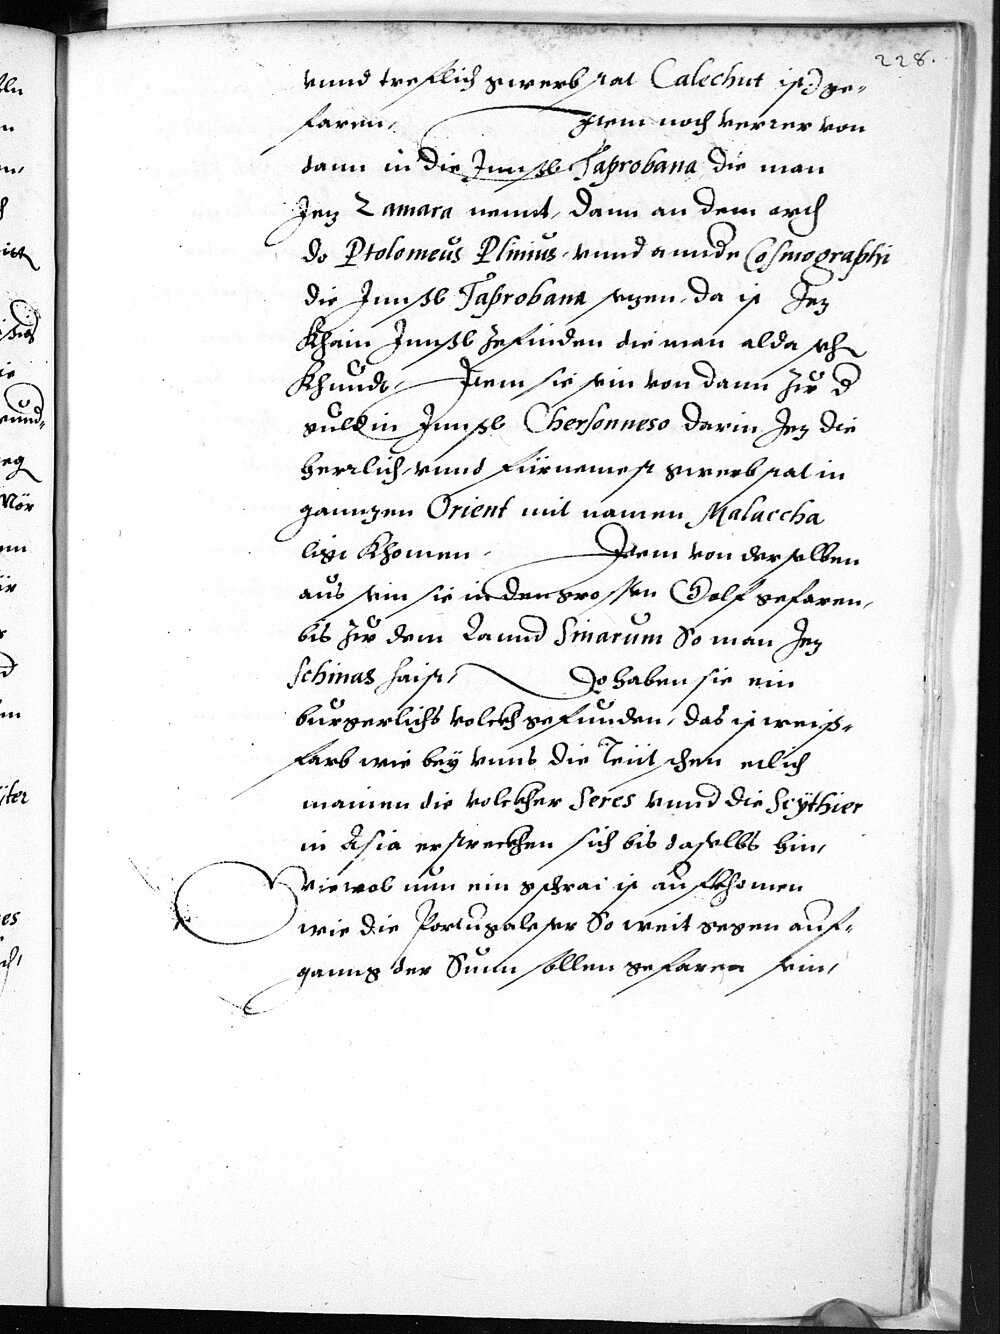 228.
vnnd treflich gwerb stat Calechut ist ge-
faren, Item noch verrer von
dann in die Innsl Taprobana die man
Jez Zamara nennt, dann an dem orth
do Ptolomeus Plinius vnnd annde Cosmographi
die Innsl Taprobana sezen, da ist Jez
khain Innsl zefinden die man alda seh
khundt, Item sie sein von dann zu d
guldin Innsl Chersonneso darin Jez die
herrlich vnnd fürnemest gwerb stat in
ganngen Orient mit namen Malaccha
ligt khomen. Item von derselben
aus sein sie in den grossen Golf gefaren,
bis zu dem Lannd Sinarum So man Jez
Schinas haist, Do haben sie ein
burgerlichs volckh gefunden, das ist weiß-
farb wie bey vnns die Teütschen etlich
mainen die volckher Seres vnnd die Scÿthier
in Asia erstreckhen sich bis daselbs hin,
Wiewol nun ein gschrai ist aufkhomen
wie die Portugaleser So weit gegen auf-
ganng der Sunn sollen gefaren sein,